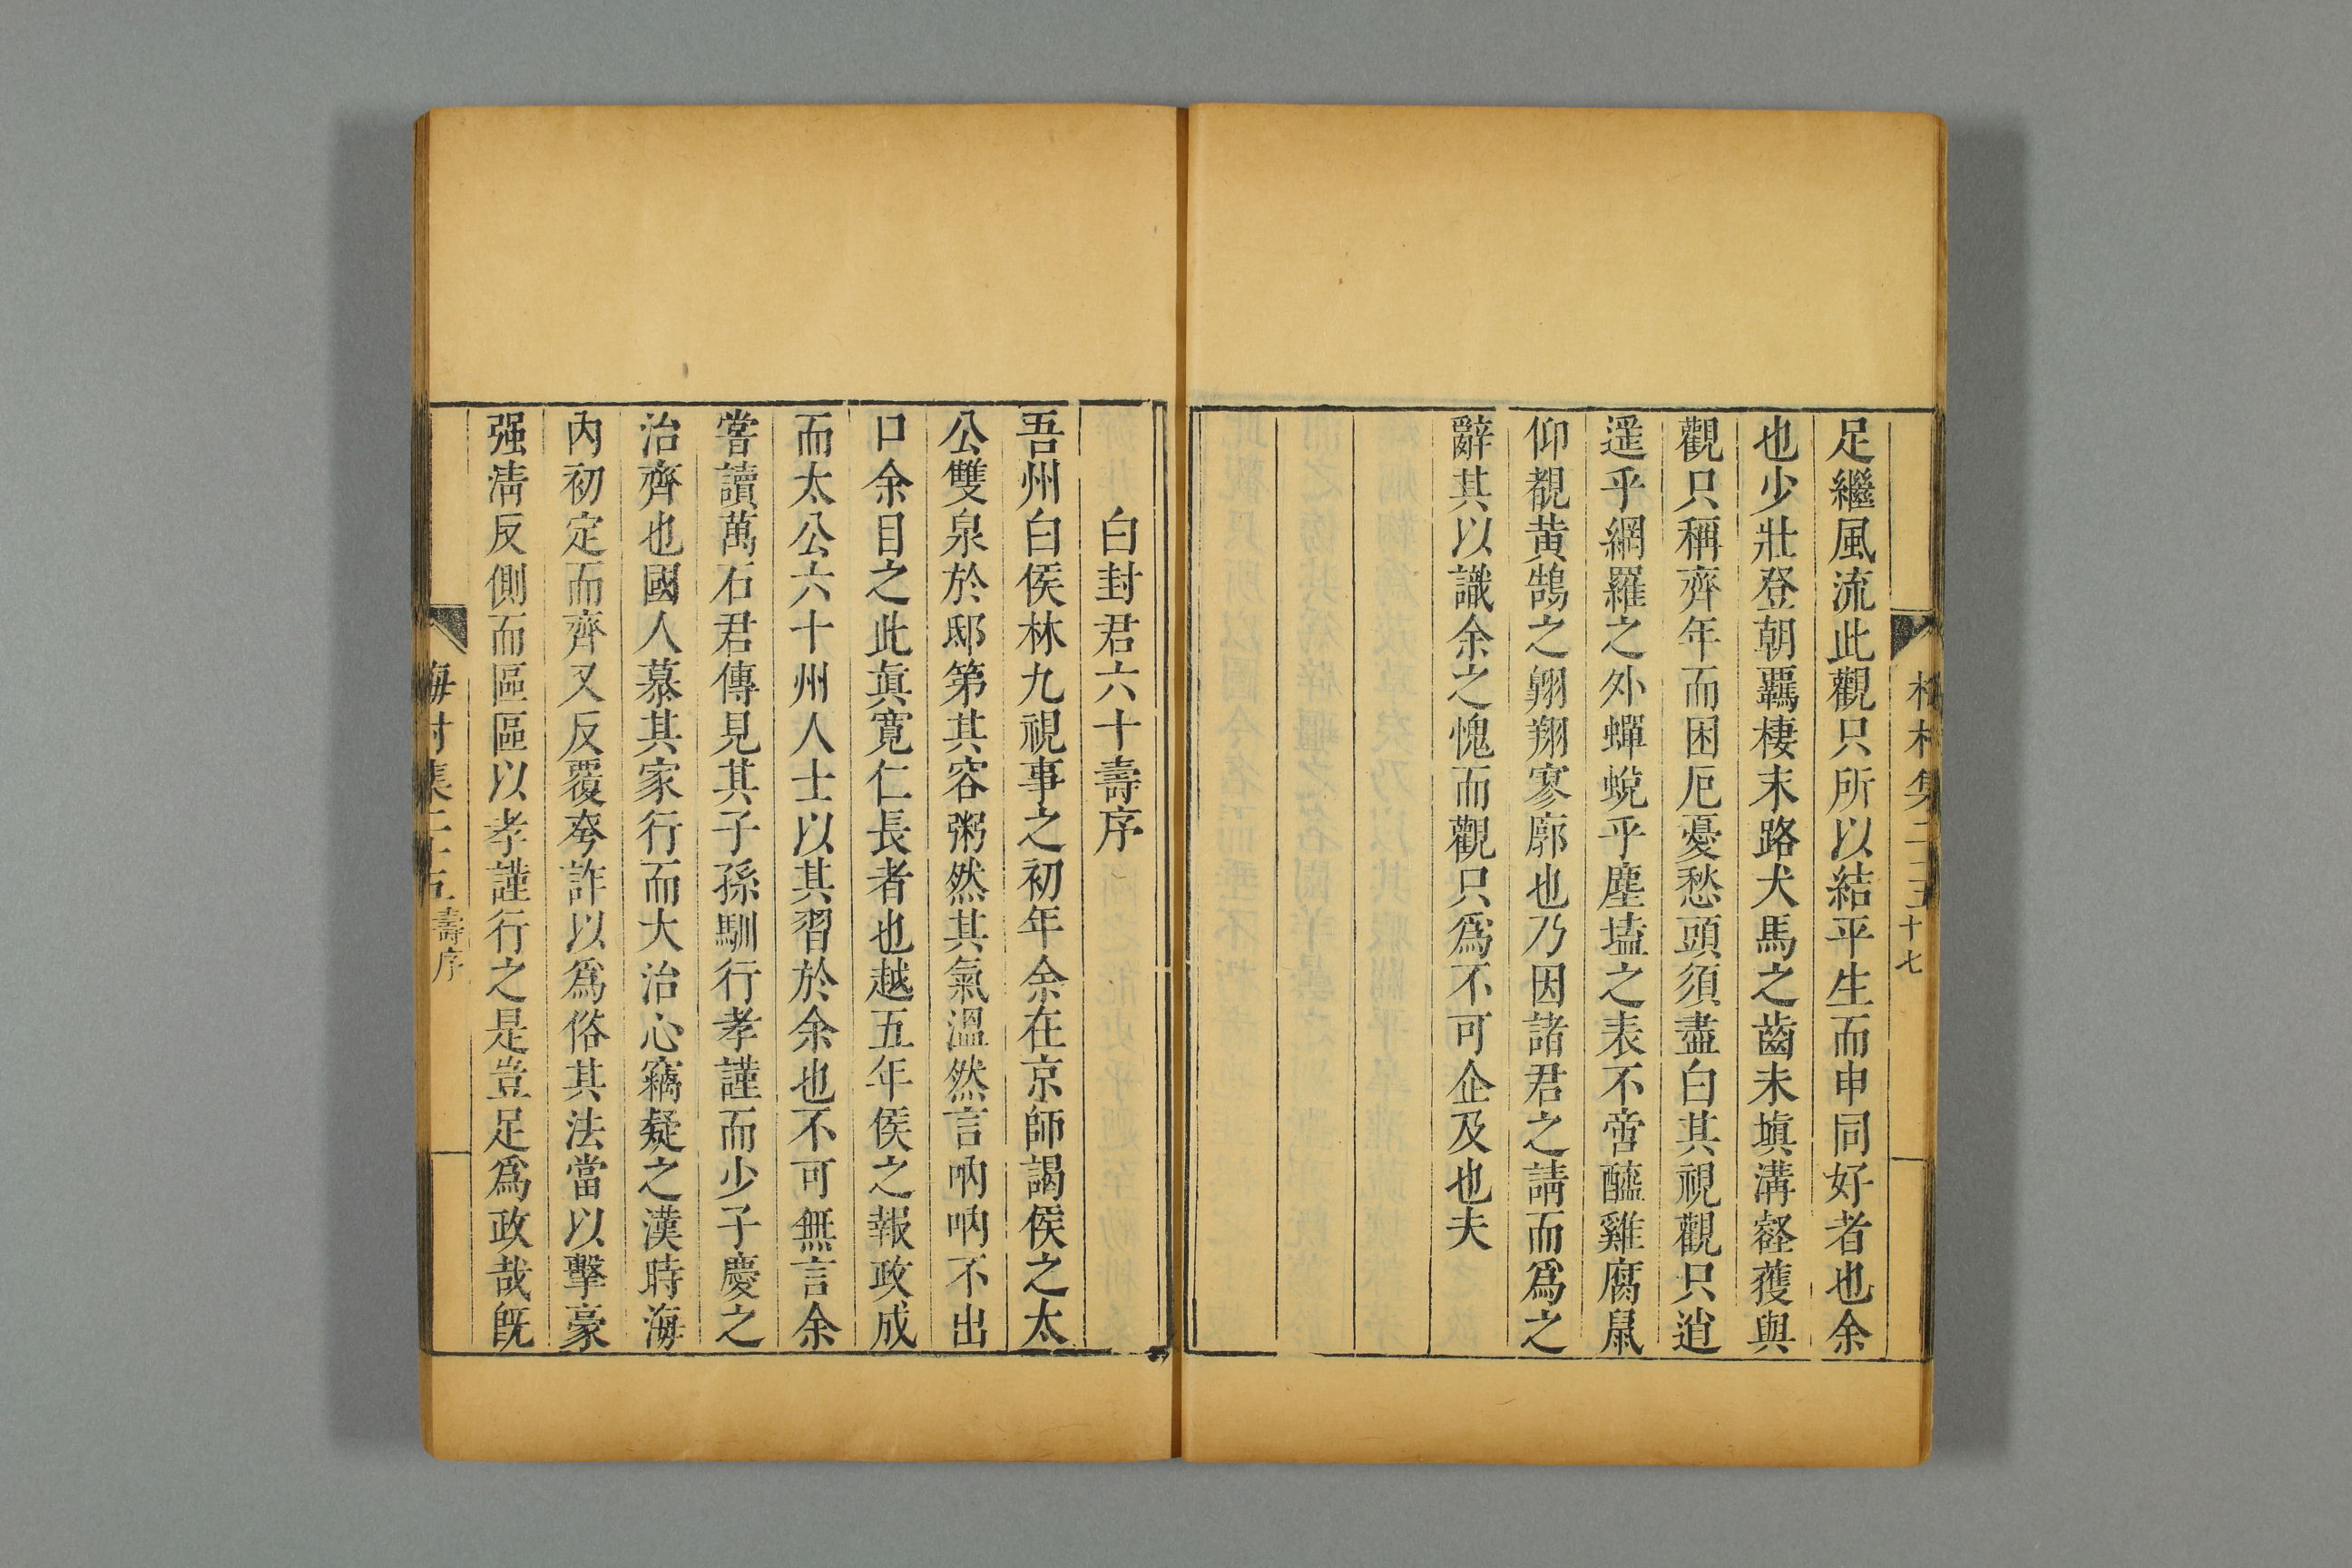 足繼風流此觀只所以結平生而申同好者也余
也少壯登朝羈棲末路犬馬之齒未塡溝壑獲與
觀只稱齊年而困厄憂愁頭須盡白其視觀只逍
遥乎網羅之外蟬蛻乎塵壒之表不啻醯雞腐鼠
仰覩黄鵠之翱翔寥廓也乃因諸君之請而爲之
辭其以識余之愧而觀只爲不可企及也夫
十七
白封君六十壽序
吾州白侯林九視事之初年余在京師謁侯之太
公雙泉於邸第其容粥然其氣溫然言吶吶不出
口余目之此眞寬仁長者也越五年侯之報政成
而太公六十州人士以其習於余也不可無言余
嘗讀萬石君傳見其子孫馴行孝謹而少子慶之
治齊也國人慕其家行而大治心竊疑之漢時海
內初定而齊又反覆夸詐以爲俗其法當以擊豪
强淸反側而區區以孝謹行之是豈足爲政哉旣
壽序